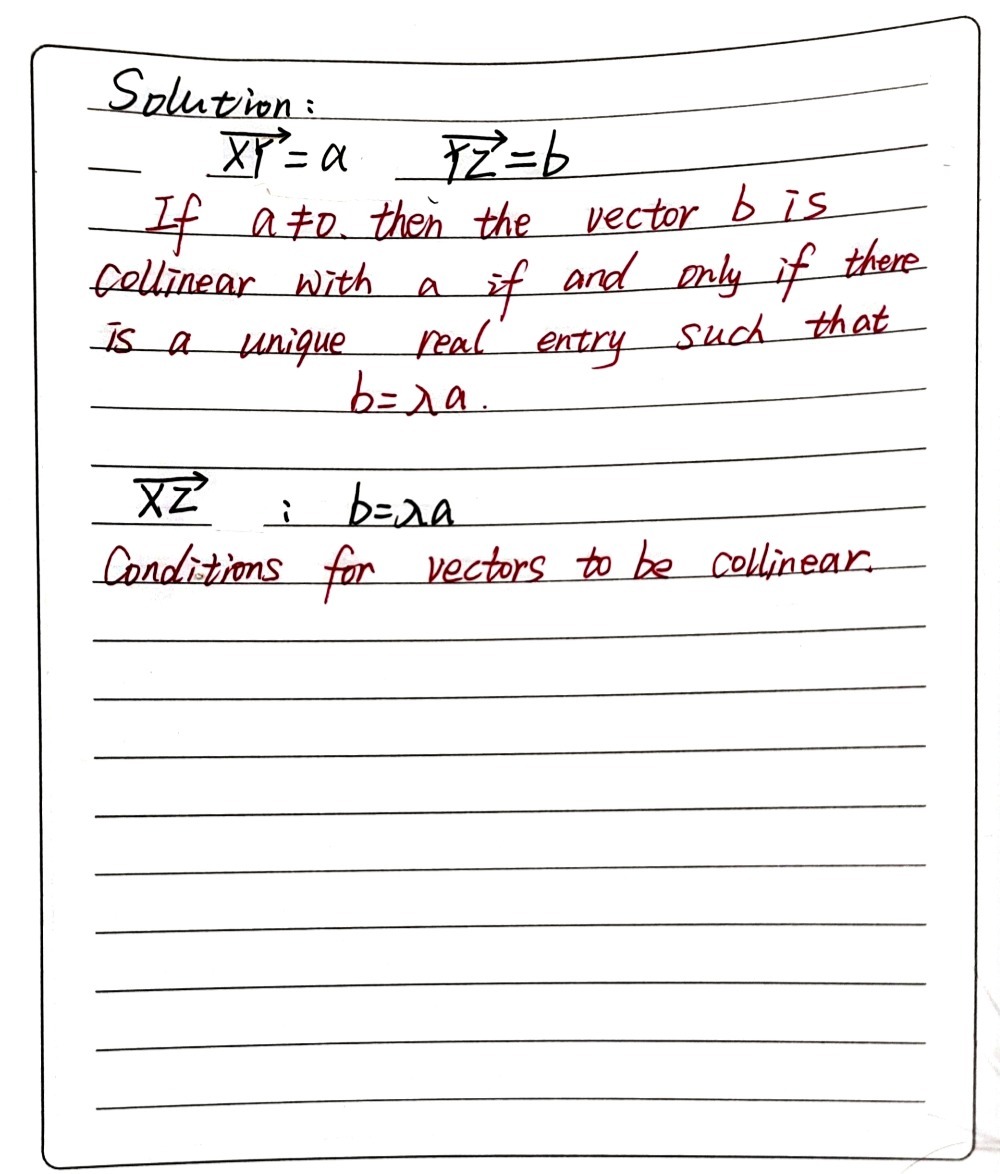 Solution:
XY⃗ = a YZ⃗ = b
If a ≠ 0. then the vector b is
collinear with a if and only if there
is a unique real entry such that
b = λa.
XZ⃗ ; b = λa
Conditions for vectors to be collinear.